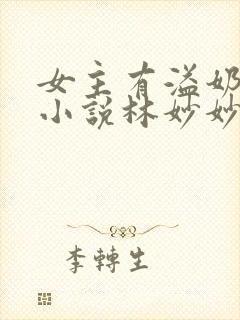 女主有溢奶
小說林妙妙
李轉生